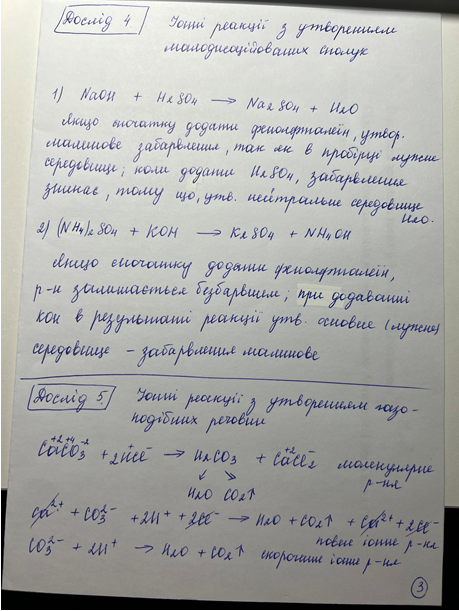 Дослід 4 Іонні реакції з утворенням
малодисоційованих сполук
1) NaOH + H₂SO₄ → Na₂SO₄ + H₂O
Якщо спочатку додати фенолфталеїн, утвор.
малинове забарвлення, так як в пробірці лужне
середовище; коли додали H₂SO₄, забарвлення
зникає, тому що, утв. нейтральне середовище
H₂O.
2) (NH₄)₂SO₄ + KOH → K₂SO₄ + NH₄OH
Якщо спочатку додати фенолфталеїн,
р-н залишається безбарвним; при додаванні
КОН в результаті реакції утв. основне (лужне)
середовище – забарвлення малинове
Дослід 5 Іонні реакції з утворенням газо-
подібних речовин
CaCO₃ + 2HCl → H₂CO₃ + CaCl₂ молекулярне
р-ня
H₂O CO₂↑
Ca²⁺ + CO₃²⁻ + 2H⁺ + 2Cl⁻ → H₂O + CO₂↑ + Ca²⁺ + 2Cl⁻
повне іонне р-ня
CO₃²⁻ + 2H⁺ → H₂O + CO₂↑ скорочене іонне р-ня
3